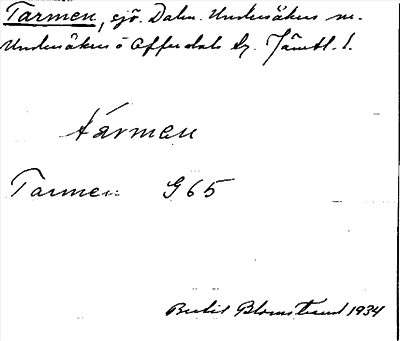 Tarmen, sjö. Dalu. Undersåkers sn.
Undersåkers o Offerdals tg. Jämtl. l.
tármen
Tarmen G65
Bertil Blomstrand 1934